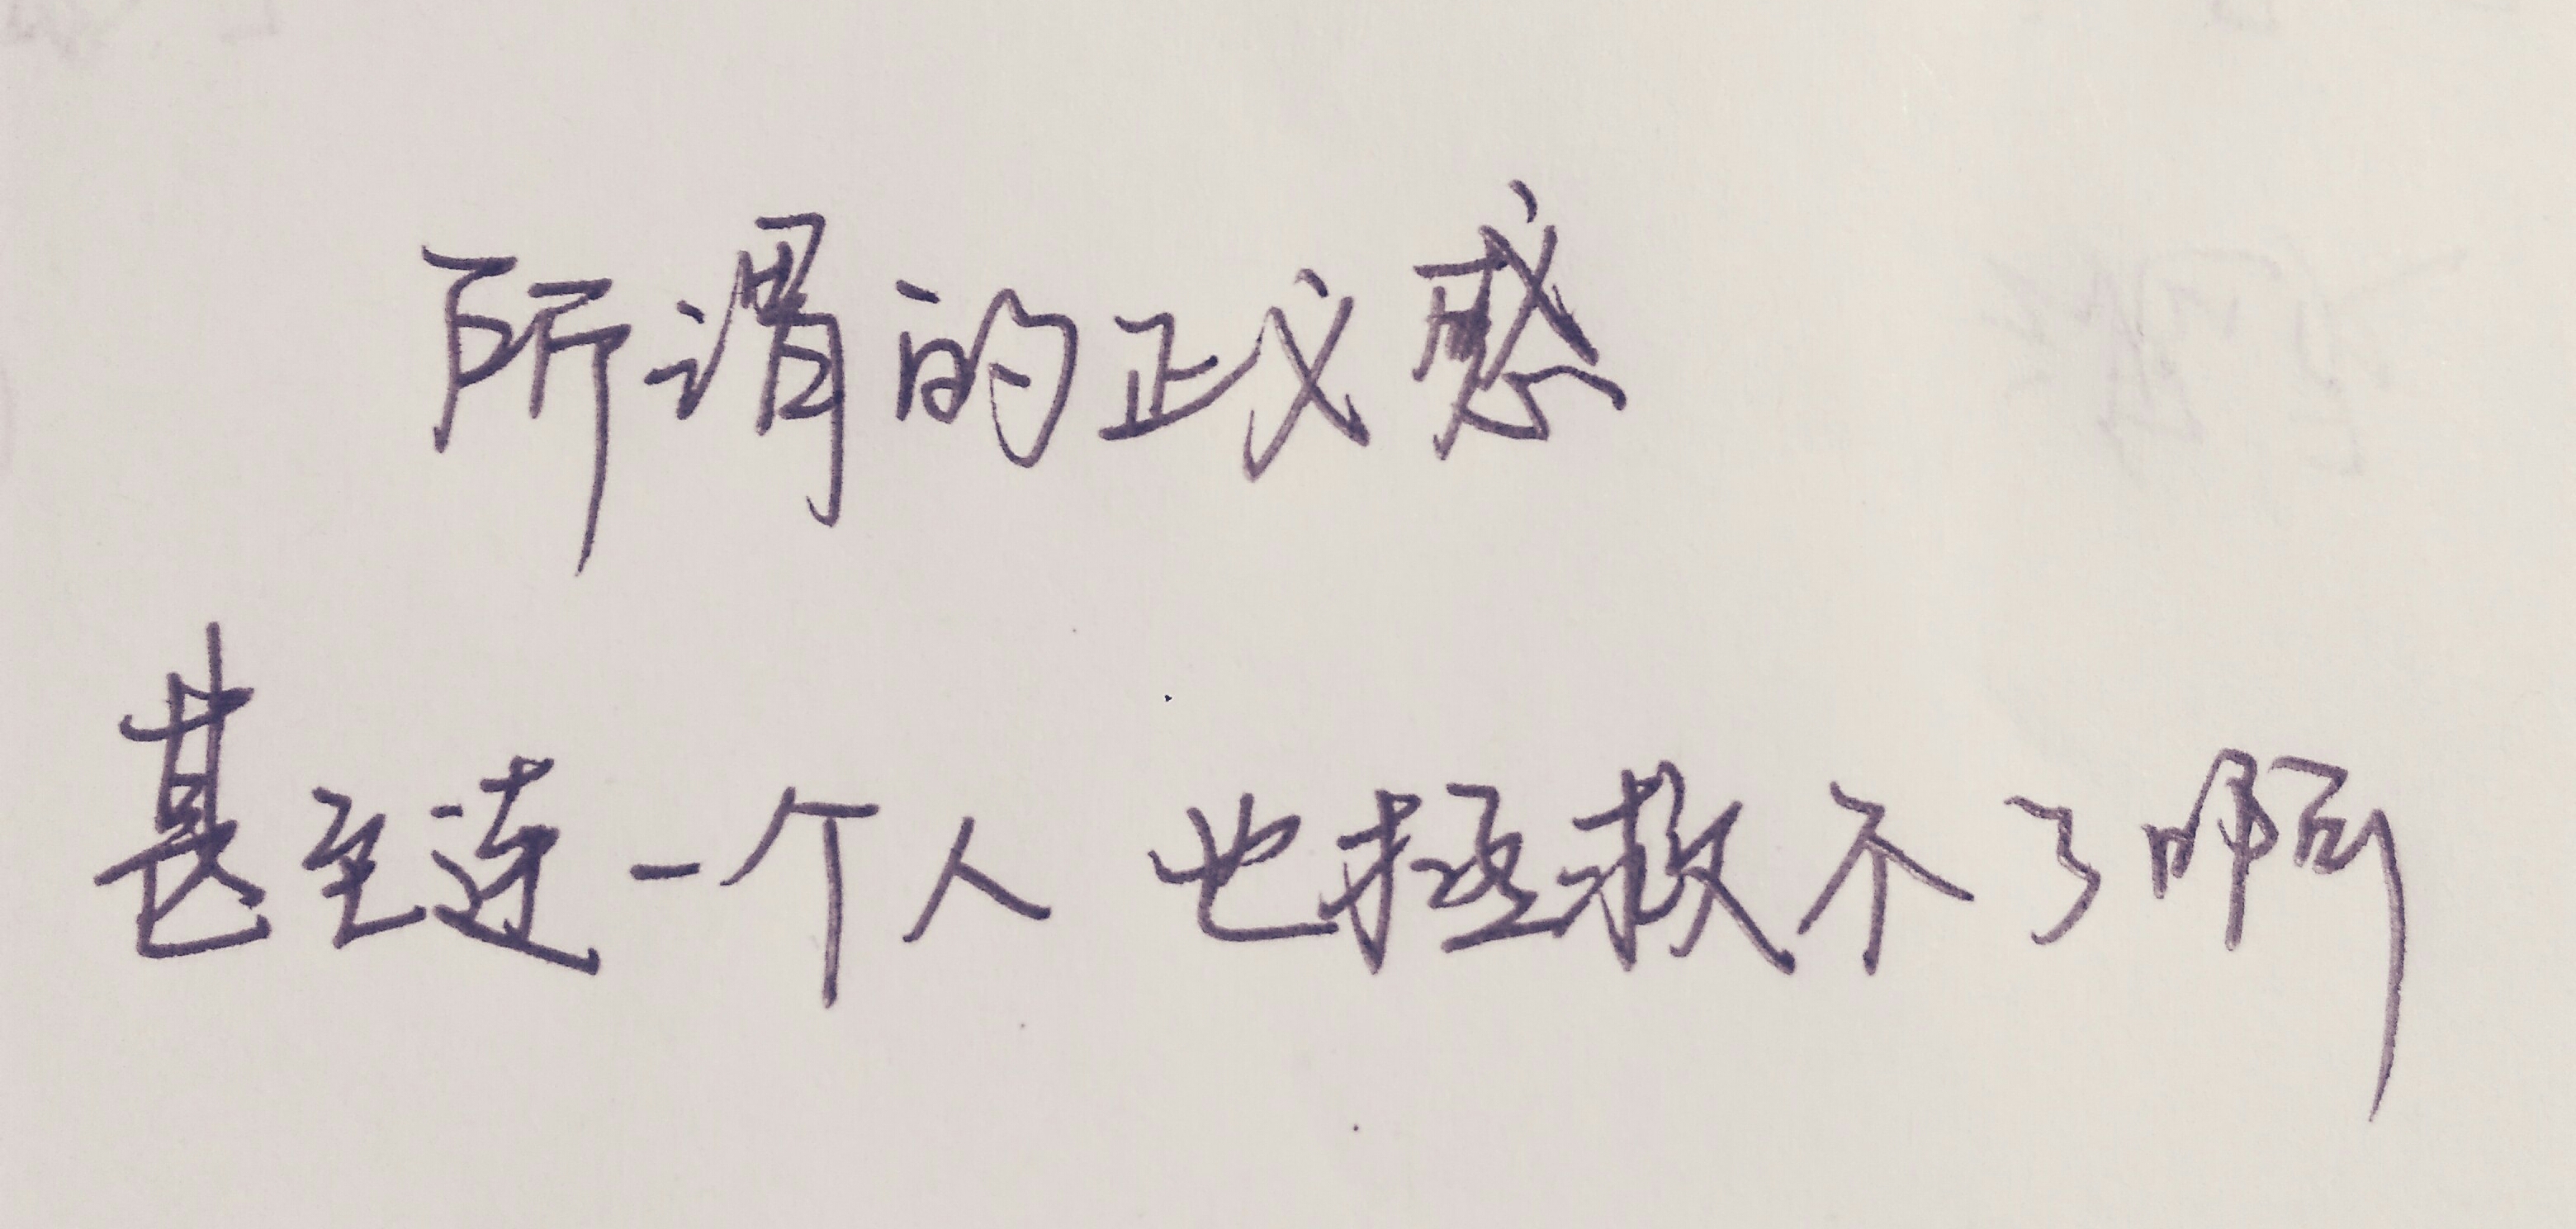 所谓的正义感
甚至连一个人 也拯救不了啊